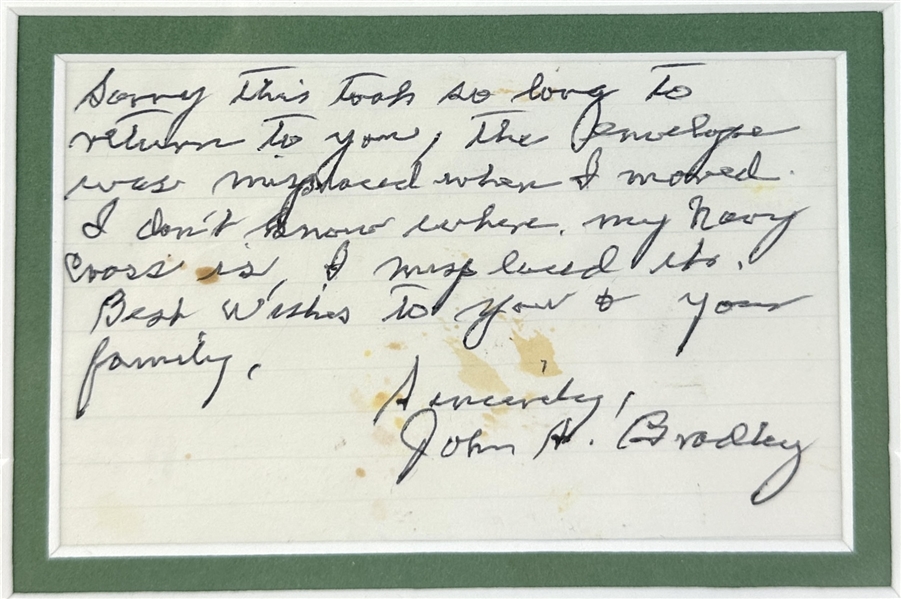 Sorry this took so long to
return to you, the envelope
was misplaced when I moved.
I don't know where my Navy
Cross is, I misplaced it.
Best Wishes to you & your
family,
Sincerely,
John H. Bradley